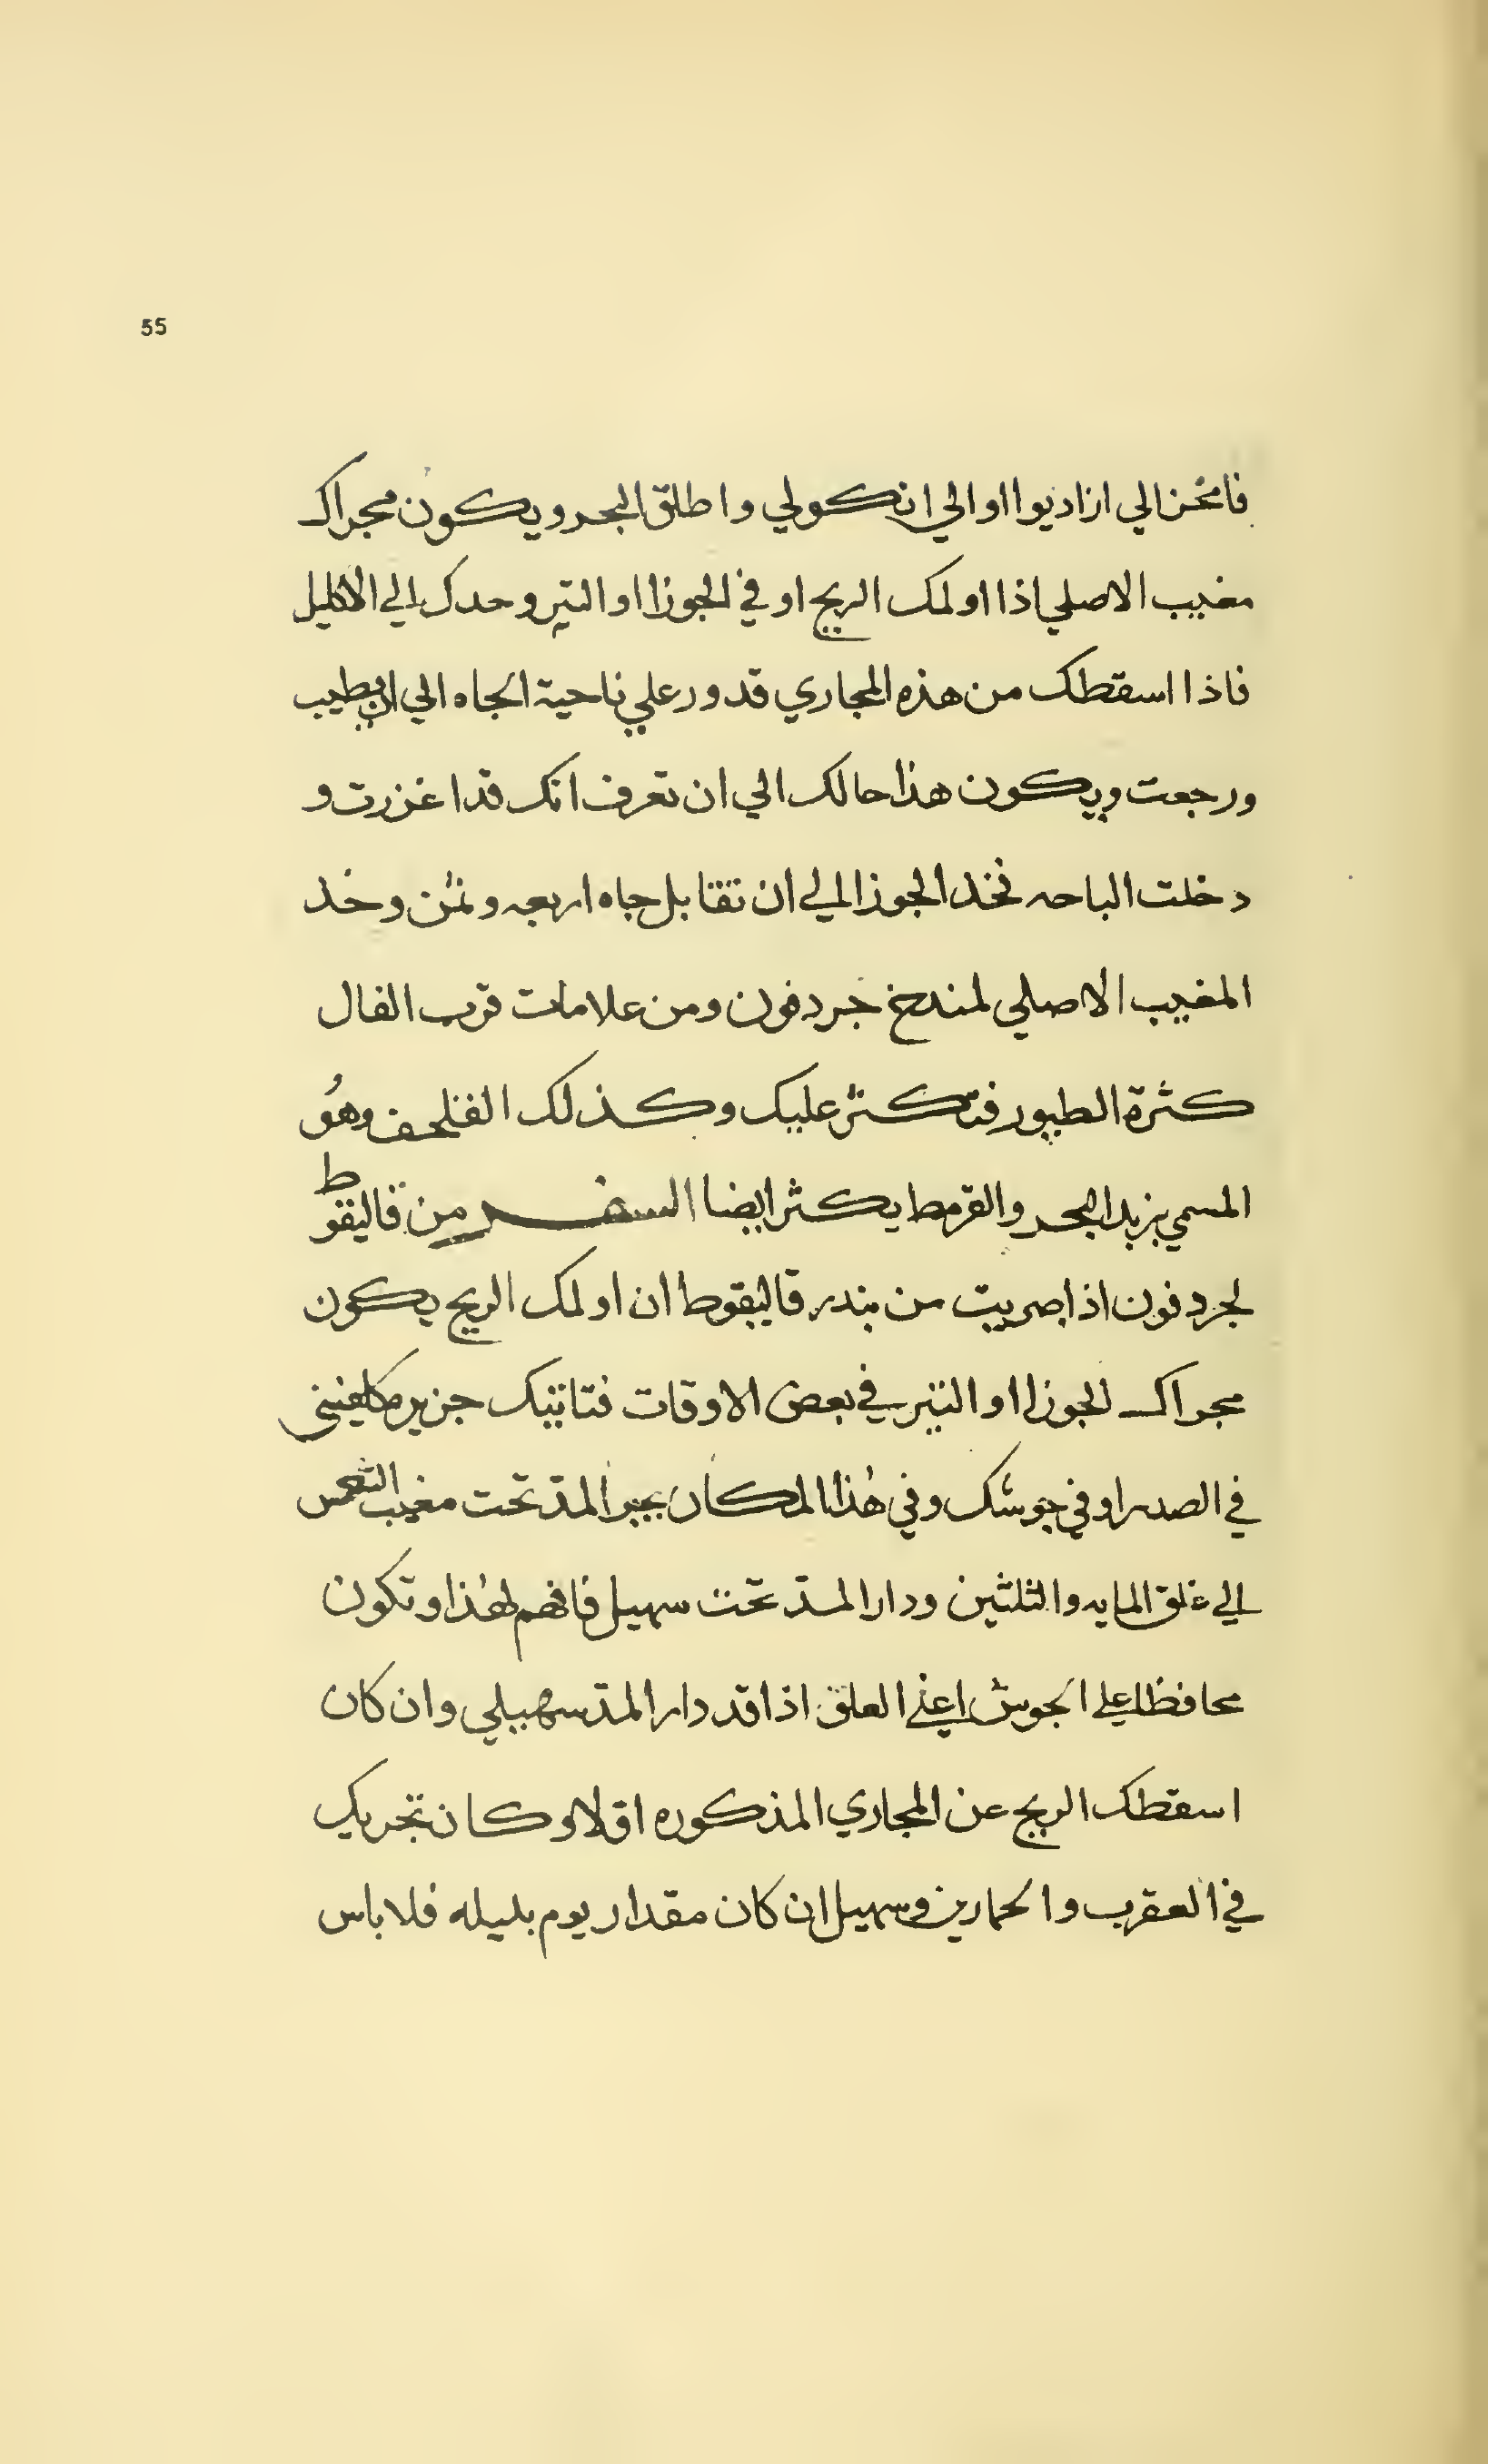 55
فامخن الي ازاديوا او الي انكولي واطلق البحر ويكون مجراك
مغيب الاصلي اذا اولمك الريح او في الجوزا او التير وحدك الي الاكليل
فاذا اسقطك من هذه المجاري قد ورعلي ناحية الجاه الي ان يطيب
ورجعت ويكون هذا حالك الي ان تعرف انك قد اغزرت و
دخلت الباحه فخد الجوزا الي ان تقابل جاه اربعه وثمن وخد
المغيب الاصلي لمندخ جردفون ومن علامات قرب الفال
كثرة الطيور فتكثر عليك وكذلك الفنلحف وهُو
المسمي بزبد البحر والقرمط يكثر ايضا السفر من قاليقوط
لجردفون اذا صريت من بندر قاليقوط ان اولمك الريح يكون
مجراك الجوزا او التير في بعض الاوقات فتاتيك جزيره كلفيني
في الصدر او في جوشك وفي هذا المكان يجر المد تحت مغيب
الي غلق المايه والثلثين ودار المد تحت سهيل فافهم لهذا وتكون
محافظا علي الجوش اعني العلق اذا قد دار المد سهيلي وان كان
اسقطك الريح عن المجاري المذكوره اولا وكان تجريك
في العقرب والحمارين وسهيل ان كان مقدار يوم بليله فلا باس